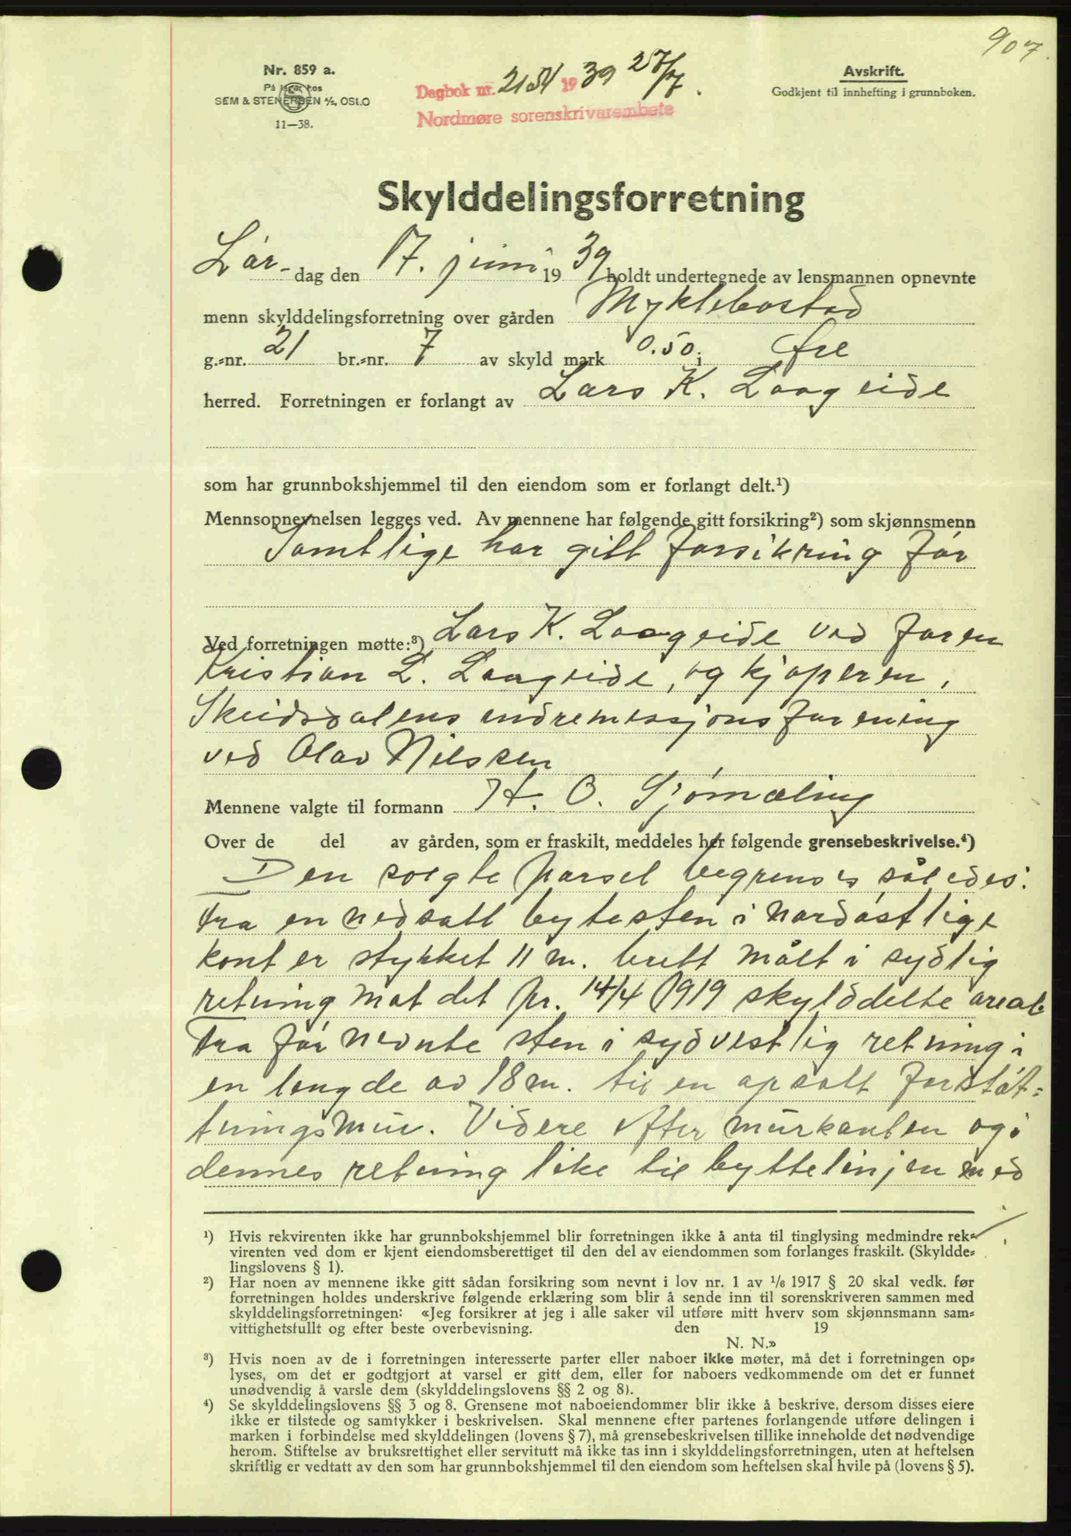 907.
Nr. 859 a.
På lager hos
SEM & STENERSEN A/S, OSLO
11—38.
Dagbok nr. 2151 1939 27/7.
Nordmøre sorenskriverembete
Avskrift.
Godkjent til innhefting i grunnboken.
Skylddelingsforretning
Lør-dag den 17. juni 1939 holdt undertegnede av lensmannen opnevnte
menn skylddelingsforretning over gården Myklebostad
g.-nr. 21 br.-nr. 7 av skyld mark 0.50 i Øre
herred. Forretningen er forlangt av Lars K. Laageide
som har grunnbokshjemmel til den eiendom som er forlangt delt.¹)
Mennsopnevnelsen legges ved. Av mennene har følgende gitt forsikring²) som skjønnsmenn
Samtlige har gitt forsikring før
Ved forretningen møtte:³) Lars K. Laageide ved faren
Kristian L. Laageide, og kjøperen,
Skeidsdalens indremissjonsforening
ved Olav Nilssen
Mennene valgte til formann H. O. Sjømæling
Over de del av gården, som er fraskilt, meddeles her følgende grensebeskrivelse.⁴)
Den solgte parsel begrenses således:
Fra en nedsatt bytesten i nordøstlige
kant er stykket 11 m. bredt målt i sydlig
retning mot det pr. 14/4 1919 skylddelte areal.
Fra før nevnte sten i sydvestlig retning i
en lengde av 18 m. til en opsatt forstøt-
tningsmur. Videre efter murkanten og i
dennes retning like til byttelinjen med
¹) Hvis rekvirenten ikke har grunnbokshjemmel blir forretningen ikke å anta til tinglysing medmindre rek-
virenten ved dom er kjent eiendomsberettiget til den del av eiendommen som forlanges fraskilt. (Skyldde-
lingslovens § 1).
²) Har noen av mennene ikke gitt sådan forsikring som nevnt i lov nr. 1 av 1/6 1917 § 20 skal vedk. før
forretningen holdes underskrive følgende erklæring som blir å sende inn til sorenskriveren sammen med
skylddelingsforretningen: «Jeg forsikrer at jeg i alle saker vil utføre mitt hverv som skjønnsmann sam-
vittighetsfullt og efter beste overbevisning. den 19
N. N.»
³) Hvis noen av de i forretningen interesserte parter eller naboer ikke møter, må det i forretningen op-
lyses, om det er godtgjort at varsel er gitt dem, eller for naboers vedkommende om det er funnet
unødvendig å varsle dem (skylddelingslovens §§ 2 og 8).
⁴) Se skylddelingslovens §§ 3 og 8. Grensene mot naboeiendommer blir ikke å beskrive, dersom disses eiere
ikke er tilstede og samtykker i beskrivelsen. Skal mennene efter partenes forlangende utføre delingen i
marken i forbindelse med skylddelingen (lovens § 7), må grensebeskrivelsen tillike inneholde det nødvendige
herom. Stiftelse av bruksrettighet eller servitutt må ikke tas inn i skylddelingsforretningen, uten at heftelsen
skriftlig er vedtatt av den som har grunnbokshjemmel til den eiendom som heftelsen skal hvile på (lovens § 5).